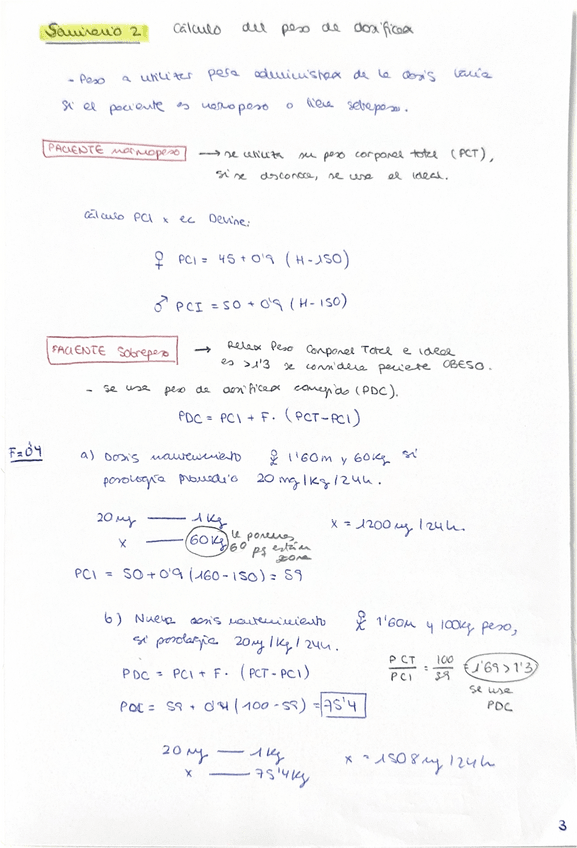 Seminario 2 Cálculo del peso de dosificar
- Peso a utilizar para administrar de la dosis varia
si el paciente es normopeso o tiene sobrepeso.
PACIENTE normopeso → se utiliza su peso corporal total (PCT),
si se desconoce, se usa el ideal.
Cálculo PCI x ec Devine:
♀ PCI = 45 + 0'9 (H-150)
♂ PCI = 50 + 0'9 (H-150)
PACIENTE Sobrepeso → Relax Peso Corporal Total e ideal
es >1'3 se considera paciente OBESO.
- Se usa peso de dosificar corregido (PDC).
PDC = PCI + F · (PCT-PCI)
F=0'4 a) Dosis mantenimiento 1'60m y 60kg si
posología promedio 20 mg/kg/24h.
20 mg — 1 kg x = 1200 mg/24h.
x — 60 kg le ponemos
60 pq está en
PCI = 50 + 0'9 (160-150) = 59
b) Nueva dosis mantenimiento 1'60m y 100kg peso,
si posología 20mg/kg/24h.
PDC = PCI + F · (PCT-PCI)
PCT/PCI = 100/59 = 1'69 > 1'3
se usa
PDC
PDC = 59 + 0'4 (100-59) = 75'4
20 mg — 1 kg x = 1508 mg/24h
x — 75'4 kg
3